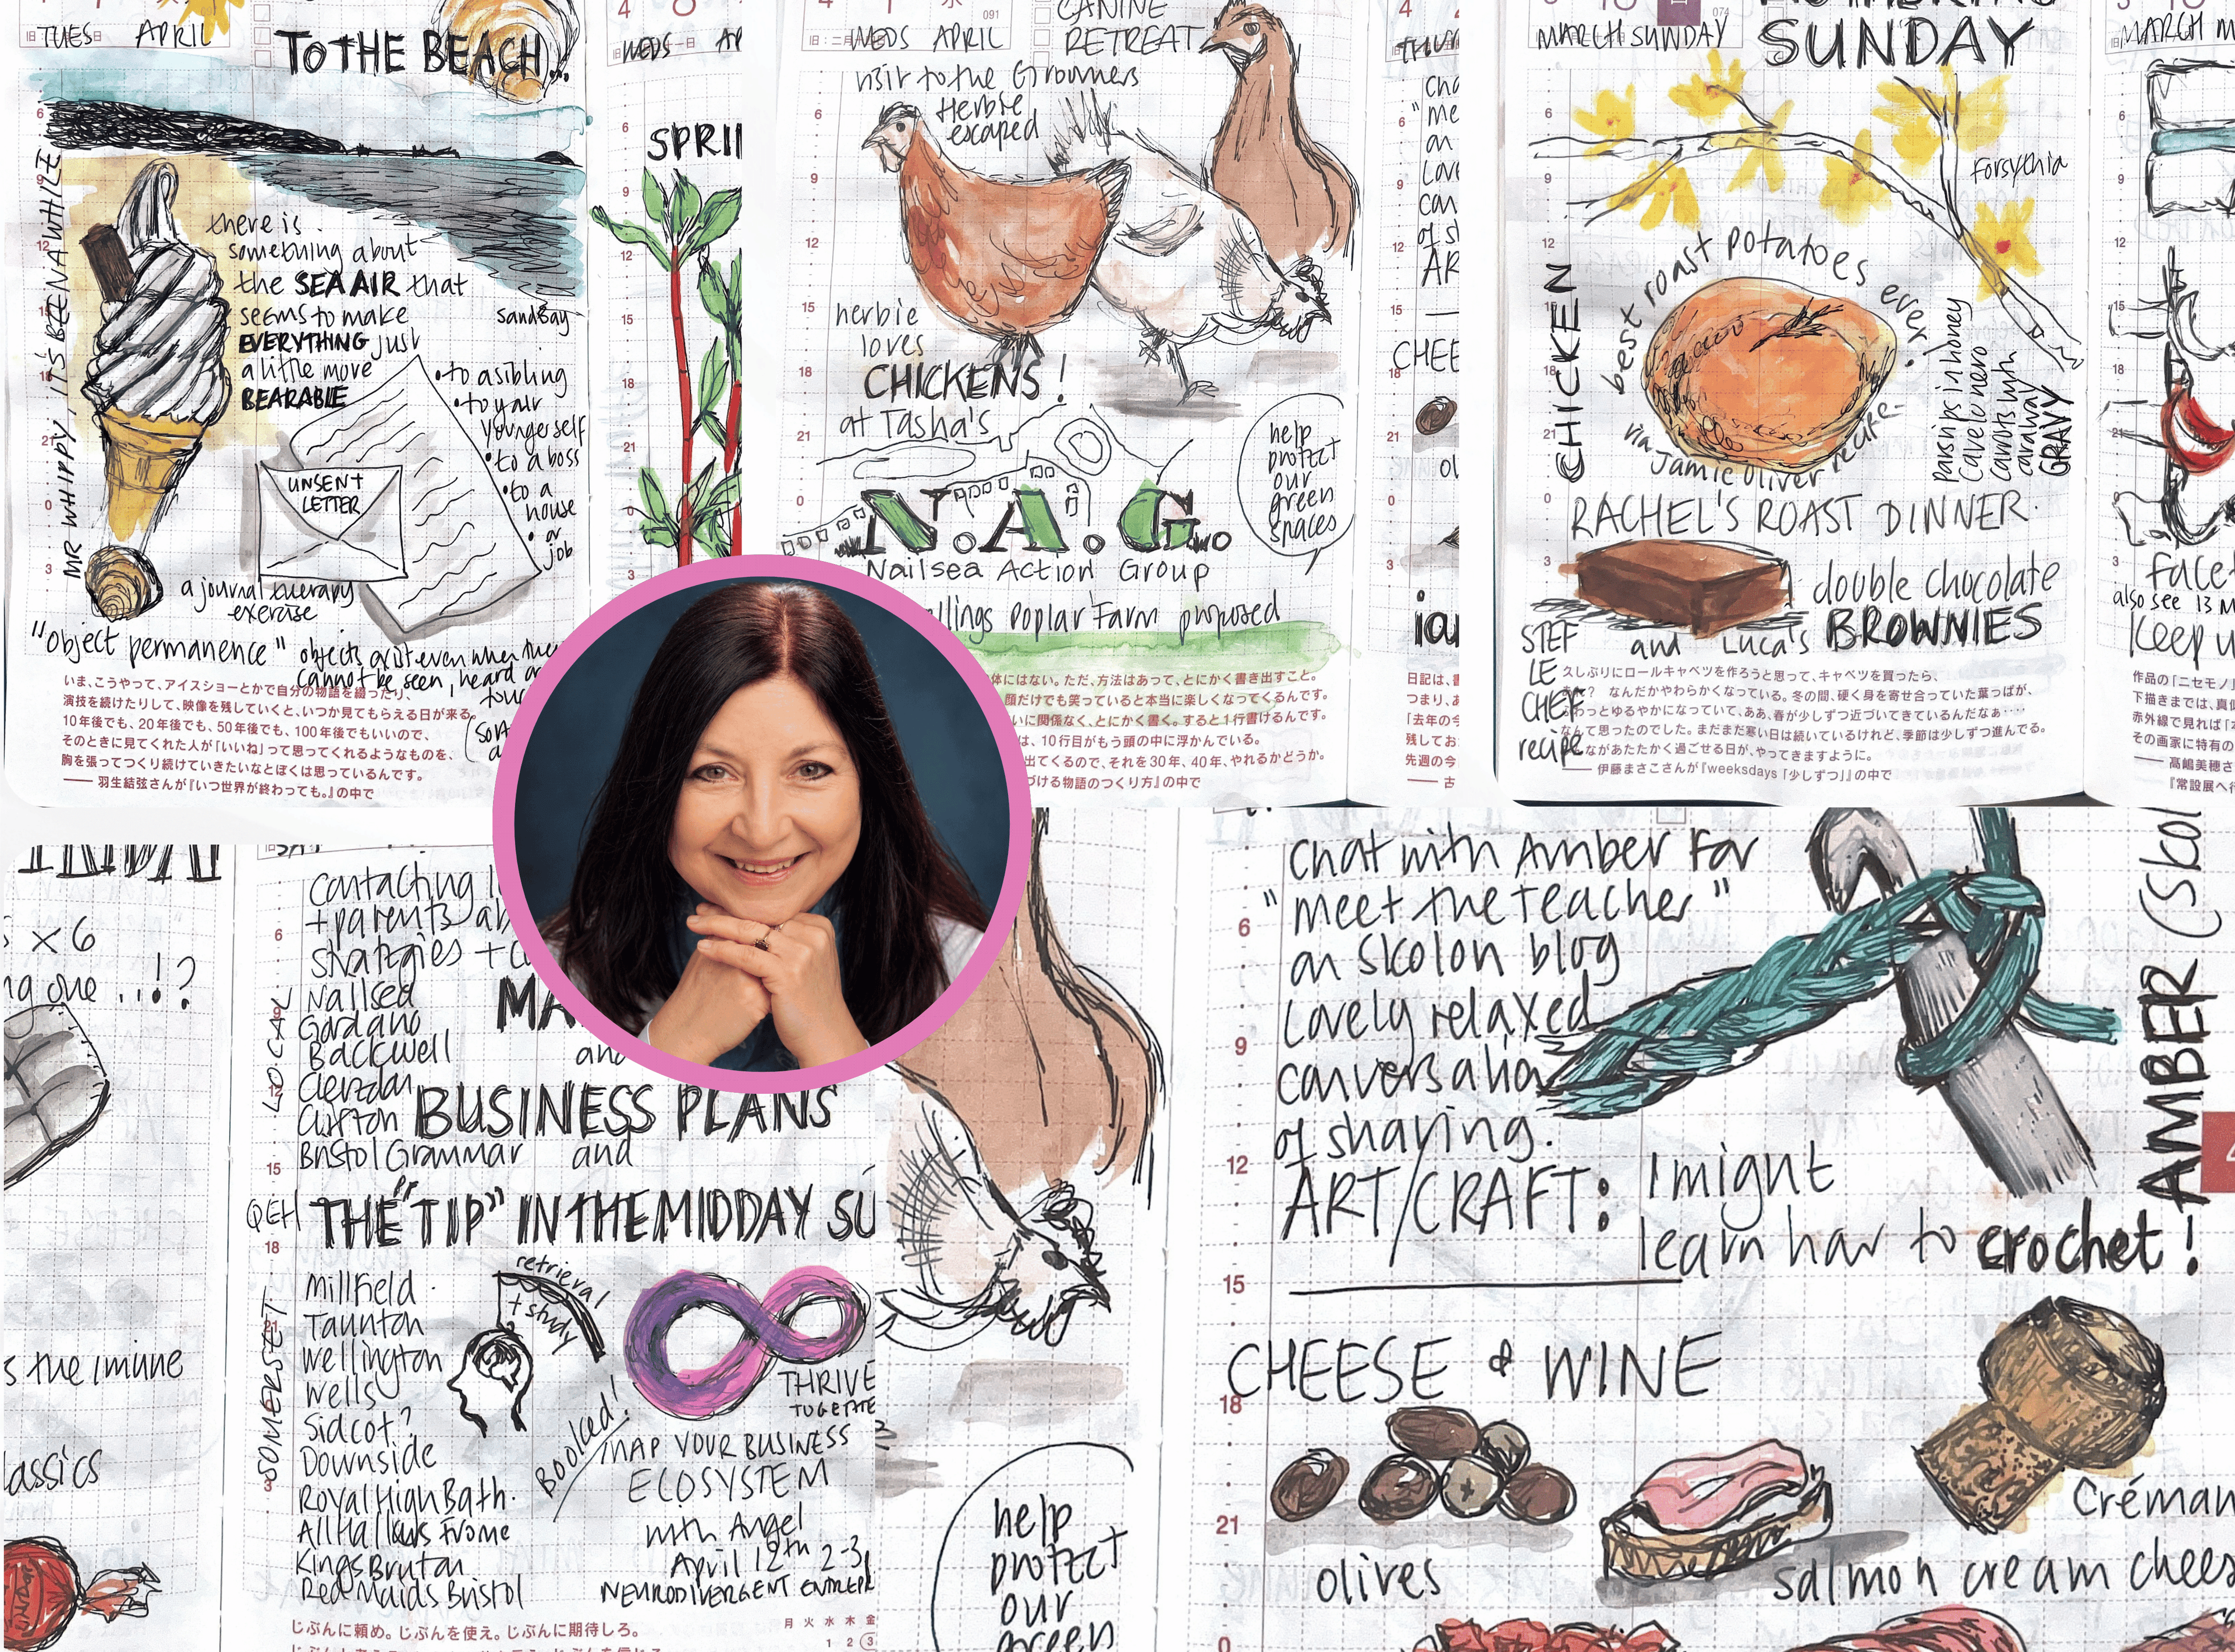 TUES APRIL
TO THE BEACH...
MR WHIPPY, IT'S BEEN A WHILE
there is
something about
the SEA AIR that
seems to make
EVERYTHING just
a little more
BEARABLE
sand Bay
UNSENT
LETTER
• to a sibling
• to your
younger self
• to a boss
• to a
house
• or
job
a journal therapy
exercise
"object permanence" objects exist even when they
cannot be seen, heard or
いま、こうやって、アイスショーとかで自分の物語を綴ったり、
演技を続けたりして、映像を残していくと、いつか見てもらえる日が来る。
10年後でも、20年後でも、50年後でも、100年後でもいいので、
そのときに見てくれた人が「いいね」って思ってくれるようなものを、
胸を張ってつくり続けていきたいなとぼくは思っているんです。
―― 羽生結弦さんが『いつ世界が終わっても。』の中で
WEDS AP
SPRI
WEDS APRIL
CANINE
RETREAT
visit to the Groomers
Herbie
escaped
herbie
loves
CHICKENS!
at Tasha's
N.A.G.
Nailsea Action Group
help
protect
our
green
spaces
llings Poplar Farm proposed
体にはない。ただ、方法はあって、とにかく書き出すこと。
顔だけでも笑っていると本当に楽しくなってくるんです。
いに関係なく、とにかく書く。すると1行書けるんです。
は、10行目がもう頭の中に浮かんでいる。
出てくるので、それを30年、40年、やれるかどうか。
づける物語のつくり方』の中で
CHEE
MARCH SUNDAY
SUNDAY
Forsythia
best roast potatoes ever.
via Jamie Oliver recipe.
CHICKEN
parsnips in honey
cavelo nero
carrots with
caraway
GRAVY
RACHEL'S ROAST DINNER.
double chocolate
and Luca's BROWNIES
STEF
LE
CHEF
recipe
久しぶりにロールキャベツを作ろうと思って、キャベツを買ったら、
なんだかやわらかくなっている。冬の間、硬く身を寄せ合っていた葉っぱが、
っとゆるやかになっていて、ああ、春が少しずつ近づいてきているんだなぁ‥‥
て思ったのでした。まだまだ寒い日は続いているけれど、季節は少しずつ進んでる。
ながあたたかく過ごせる日が、やってきますように。
―― 伊藤まさこさんが『weeksdays「少しずつ」』の中で
MARCH M
face
also see 13 M
Keep u
x 6
ng one ..!?
s the imune
lassics
LOCAL
Contacting
+ parents
strategies +
Nailsea
Gordano
Backwell
Clevedon
Clifton
Bristol Grammar
QEH
MA
and
BUSINESS PLANS
and
THE "TIP" IN THE MIDDAY SU
SOMERSET
Millfield
Taunton
Wellington
Wells
Sidcot?
Downside
Royal High Bath.
All Hallows Frome
Kings Bruton
Red Maids Bristol
retrieval
+ study
Booked!
THRIVE
TOGETHE
MAP YOUR BUSINESS
ECOSYSTEM
with Angel
April 12th 2-3
NEURODIVERGENT ENTREPR
じぶんに頼め。じぶんを使え。じぶんに期待しろ。
月 火 水 木 金
1 2 3
help
protect
our
green
chat with Amber for
"meet the teacher"
on Skolon blog
Lovely relaxed
conversation
of sharing.
ART/CRAFT: I might
learn how to crochet!
AMBER (Skol
CHEESE & WINE
olives
salmon cream chees
Créman